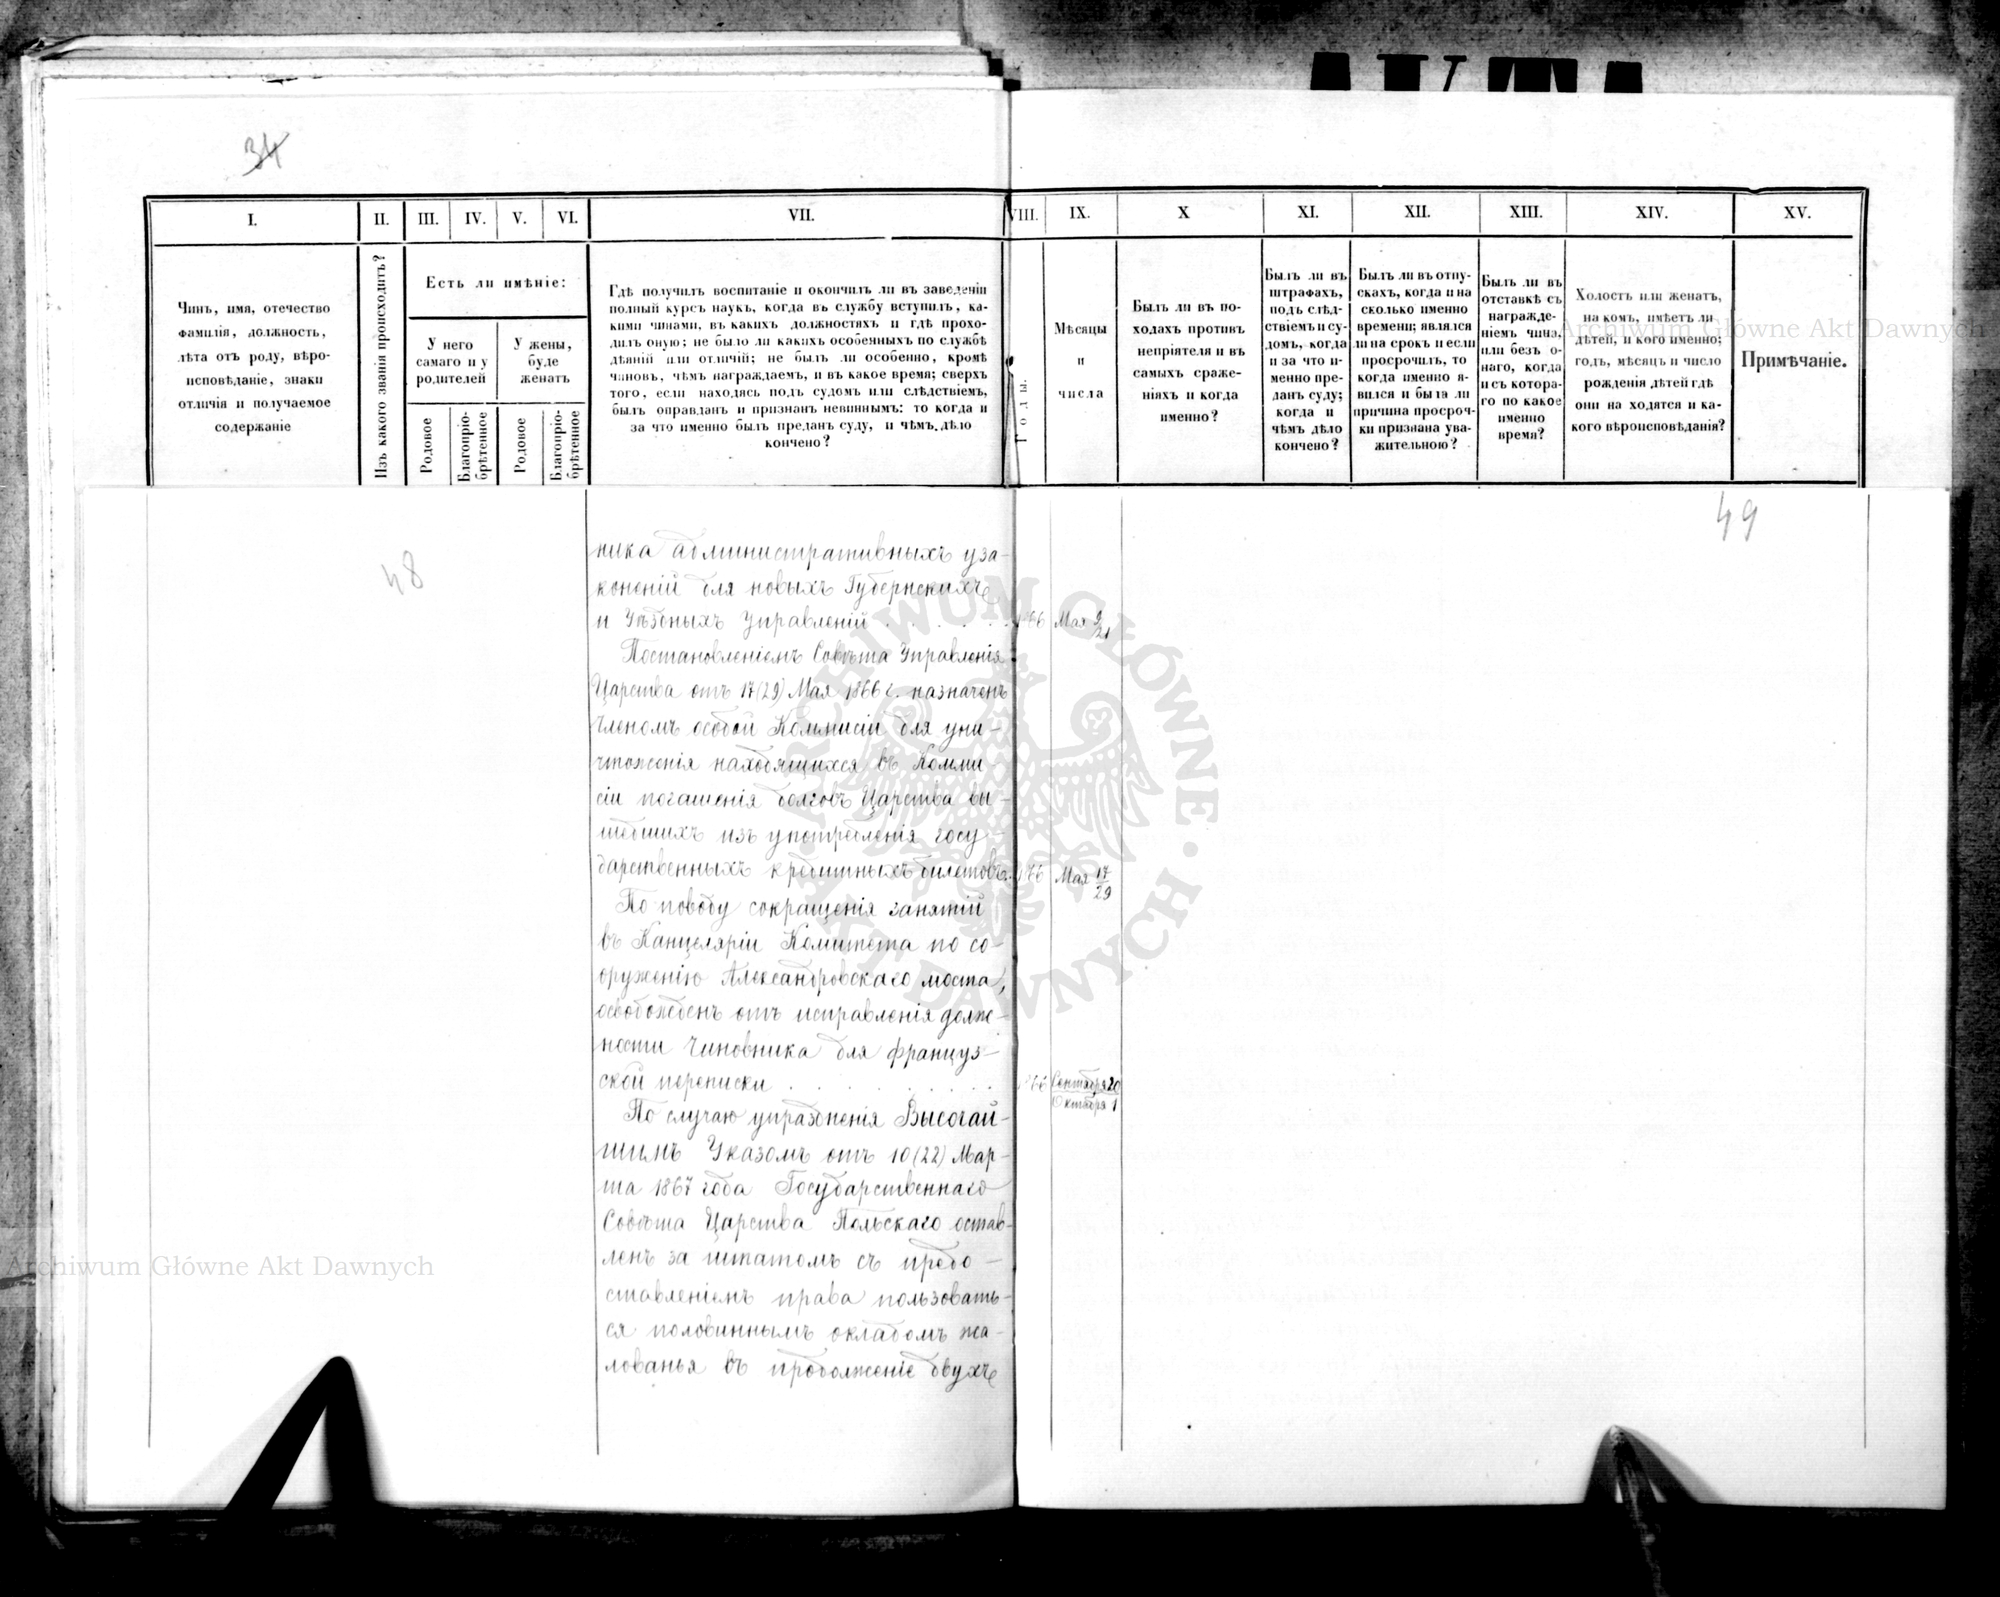 34
I.
II.
III.
IV.
V.
VI.
VII.
VIII.
IX.
X
XI.
XII.
XIII.
XIV.
XV.
Чинъ, имя, отечество
фамилія, должность,
лѣта отъ роду, вѣро-
исповѣданіе, знаки
отличія и получаемое
содержаніе
Изъ какого званія происходитъ?
Есть ли имѣніе:
У него
самаго и у
родителей
У жены,
буде
женатъ
Родовое
Благопріо-
брѣтенное
Родовое
Благопріо-
брѣтенное
Гдѣ получилъ воспитаніе и окончилъ ли въ заведеніи
полный курсъ наукъ, когда въ службу вступилъ, ка-
кими чинами, въ какихъ должностяхъ и гдѣ прохо-
дилъ оную; не было ли какихъ особенныхъ по службѣ
дѣяній или отличій; не былъ ли особенно, кромѣ
чиновъ, чѣмъ награждаемъ, и въ какое время; сверхъ
того, если находясь подъ судомъ или слѣдствіемъ,
былъ оправданъ и признанъ невиннымъ: то когда и
за что именно былъ преданъ суду, и чѣмъ дѣло
кончено?
Годы.
Мѣсяцы
и
числа
Былъ ли въ по-
ходахъ противъ
непріятеля и въ
самыхъ сраже-
ніяхъ и когда
именно?
Былъ ли въ
штрафахъ,
подъ слѣд-
ствіемъ и су-
домъ, когда
и за что и-
менно пре-
данъ суду;
когда и
чѣмъ дѣло
кончено?
Былъ ли въ отпу-
скахъ, когда и на
сколько именно
времени; являлся
ли на срокъ и если
просрочилъ, то
когда именно я-
вился и была ли
причина просроч-
ки признана ува-
жительною?
Былъ ли въ
отставкѣ съ
награжде-
ніемъ чина,
или безъ о-
наго, когда
и съ котора-
го по какое
именно
время?
Холостъ или женатъ,
на комъ, имѣетъ ли
дѣтей, и кого именно;
годъ, мѣсяцъ и число
рожденія дѣтей гдѣ
они на ходятся и ка-
кого вѣроисповѣданія?
Примѣчаніе.
48
49
ника административныхъ уза-
коненій для новыхъ Губернскихъ
и Уѣздныхъ Управленій . . . . . 1866 Мая 9/21
Постановленіемъ Совѣта Управленія
Царства отъ 17(29) Мая 1866 г. назначенъ
Членомъ особой Коммисіи для уни-
чтоженія находящихся въ Комми-
сіи погашенія долговъ Царства вы-
шедшихъ изъ употребленія госу-
дарственныхъ кредитныхъ билетовъ. 1866 Мая 17/29
По поводу сокращенія занятій
въ Канцеляріи Комитета по со-
оруженію Александровскаго моста,
освобожденъ отъ исправленія долж-
ности Чиновника для француз-
ской переписки . . . . . . . . . 1866 Сентября 20
Октября 1
По случаю упраздненія Высочай-
шимъ Указомъ отъ 10(22) Мар-
та 1867 года Государственнаго
Совѣта Царства Польскаго остав-
ленъ за штатомъ съ предо-
ставленіемъ права пользовать-
ся половиннымъ окладомъ жа-
лованья въ продолженіе двухъ
ARCHIWUM GŁÓWNE AKT DAWNYCH
Archiwum Główne Akt Dawnych
Archiwum Główne Akt Dawnych